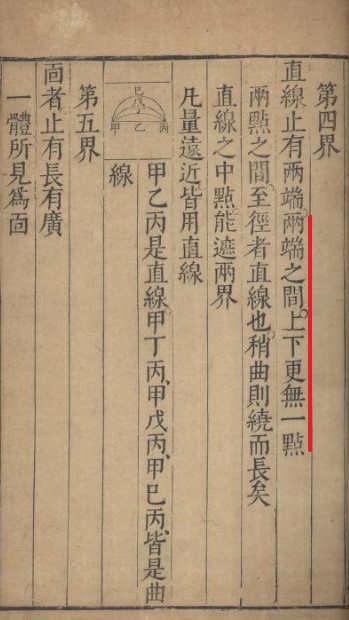 第四界
直線止有兩端兩端之間上下更無一點
兩點之間至徑者直線也稍曲則繞而長矣
直線之中點能遮兩界
凡量遠近皆用直線
甲乙丙是直線甲丁丙、甲戊丙、甲巳丙、皆是曲
線
巳
戊
丁
丙
乙
甲
第五界
面者止有長有廣
一體所見爲面